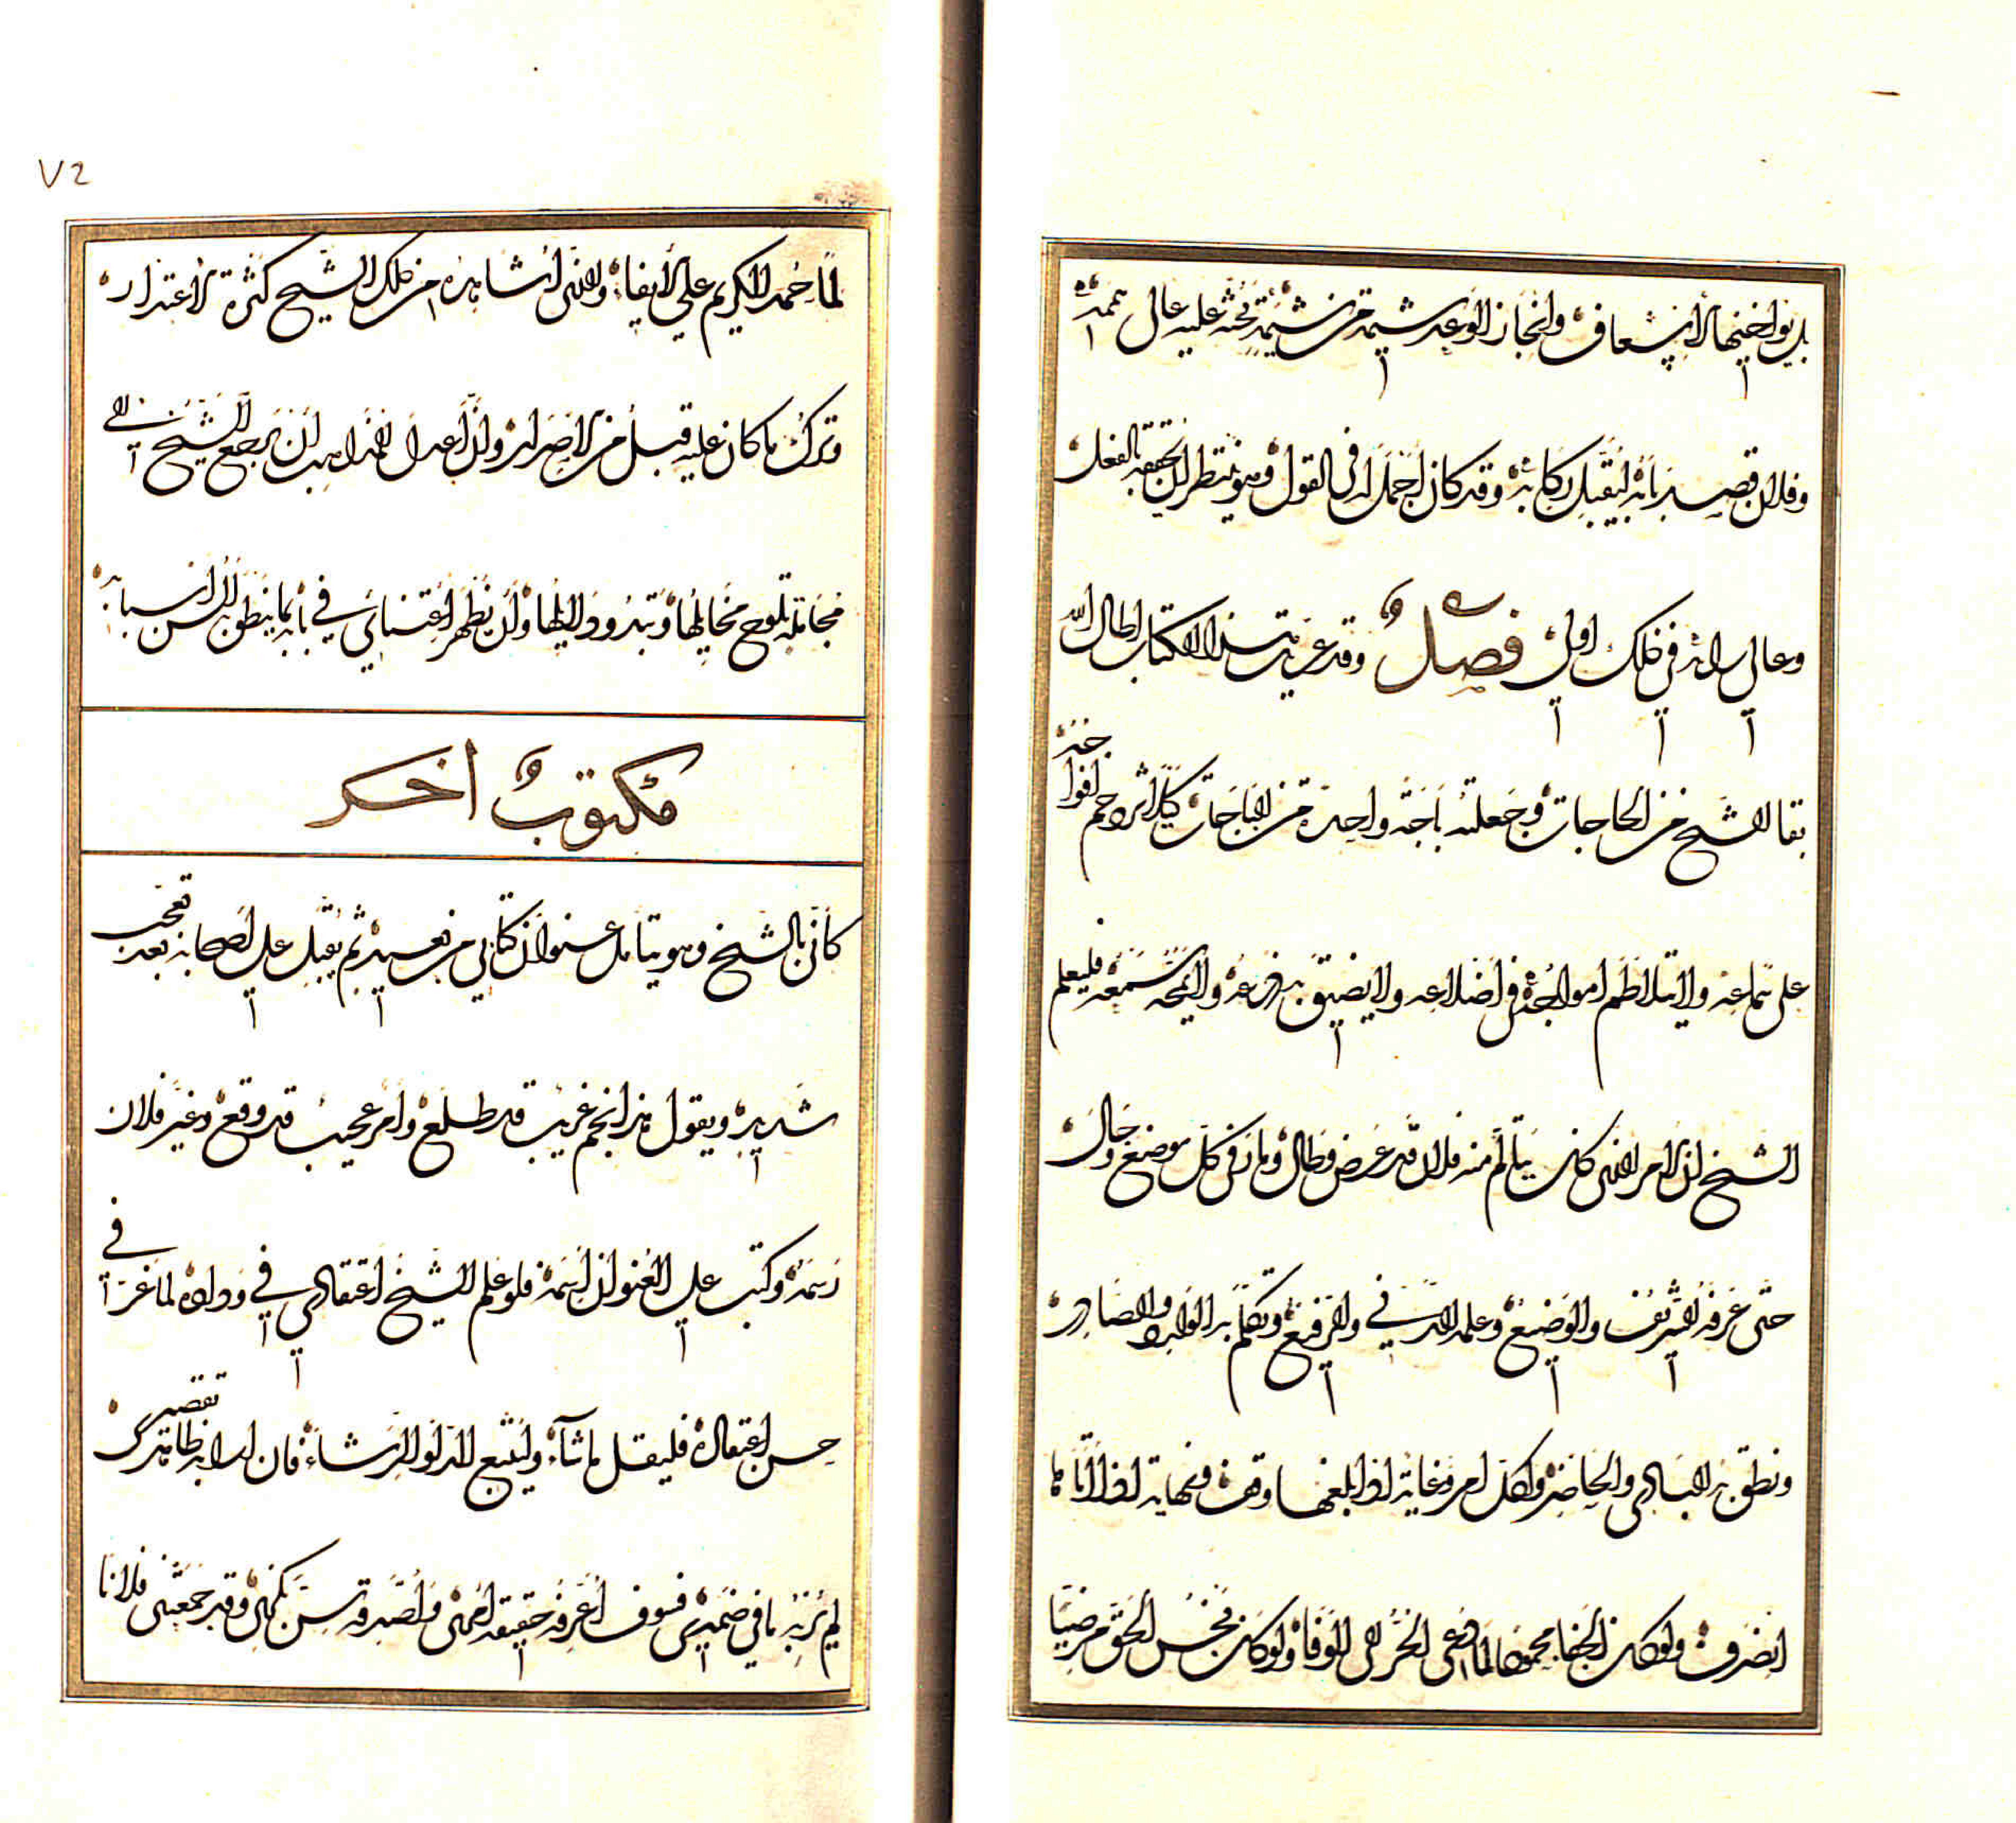 بل يواخيها الإسعاف وإنجاز الوعد شيمة من شيمه تحثه عليه عالي هممه
وفلان قصد بابه ليقبل ركابه وقد كان أجمل له في القول وهو ينتظر أن يحققه بالفعل
وعالي رايه في ذلك أولى فصل وقد عريت هذا الكتاب أطال الله
بقا الشيخ من الحاجات وجعلته باجة واحدة من الباجات كيلا تزدحم أفواجه
على سماعه ولا تتلاطم أمواجه في أضلاعه ولا يضيق به ذرعه ولا يمجه سمعه فليعلم
الشيخ أن الأمر الذي كان يتألم منه فلان قد عرض وطال ودار في كل موضع وجال
حتى عرفه الشريف والوضيع وعلمه الدني والرفيع وتكلم به الوارد والصادر
ونطق به البادي والحاضر ولكل أمر وغاية إذا بلغها وقف ونهاية إذا أتاها
انصرف ولو كان الجفا محمودا لما دعى الحر إلى الوفا ولو كان بخس الحق مرضيا
لما حمد الكريم على الإيفاء والذي أشاهده من ذلك الشيخ كثرة الاعتذار
وترك ما كان عليه قبل من الإصرار وإن أعدل المذاهب أن يرجع الشيخ إلى
مجاملة تلوح مخايلها وتبدو دلايلها وأن نظهر اعتنائي في بابه بما ينطق به ألسن أسبابه
مكتوب اخر
كأني بالشيخ وهو يتأمل عنوان كتابي من بعيد ثم يقبل على أصحابه بعد تعجب
شديد ويقول هذا نجم غريب قد طلع وأمر عجيب قد وقع وغير فلان
رسمه وكتب على العنوان اسمه فلو علم الشيخ اعتقادي في وداده لما عزا في
حسن اعتقاده فليقل ما شاء وليتبع الدلو الرشاء فإن لسانه ظاهر تقصير
لم يرني ما في ضميري فسوف أعرفه حقيقة أمري وأصدقه سن بكري وقد جمعتني فلانا